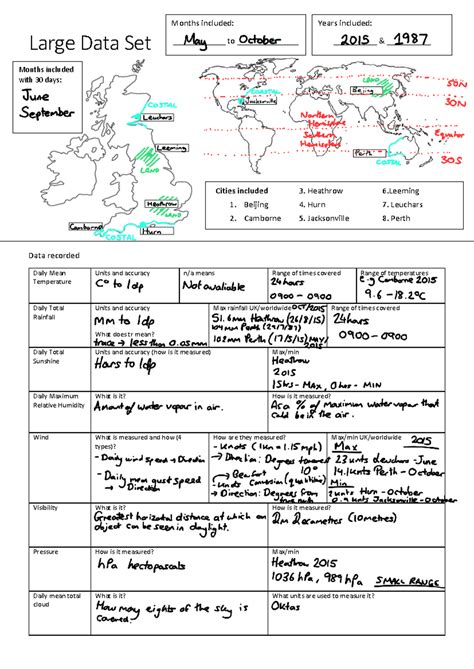 Large Data Set
Months included:
May to October
Years included:
2015 & 1987
Months included
with 30 days:
June
September
COSTAL
Leuchars
Leeming
LAND
Heathrow
LAND
Camborne
Hurn
COSTAL
COASTAL
Jacksonville
LAND
Beijing
Northern
Hemisphere
Southern
Hemisphere
Perth
COSTAL
50N
30N
Equator
30S
Cities included
1. Beijing
2. Camborne
3. Heathrow
4. Hurn
5. Jacksonville
6.Leeming
7. Leuchars
8. Perth
Data recorded
Daily Mean
Temperature
Units and accuracy
C° to 1dp
n/a means
Not avaliable
Range of times covered
24hours
0900 - 0900
Range of temperatures
E.g Camborne 2015
9.6 - 18.2°C
Daily Total
Rainfall
Units and accuracy
MM to 1dp
What does tr mean?
trace → less than 0.05mm
Max rainfall UK/worldwide Oct/2015
51.6mm Heathrow (26/8/15)
104mm Perth (29/7/87)
102mm Perth (17/5/15) May/
2015
Range of times covered
24hours
0900 - 0900
Daily Total
Sunshine
Units and accuracy (how is it measured)
Hours to 1dp
Max/min
Heathrow
2015
15hrs - MAX, 0 hour - MIN
Daily Maximum
Relative Humidity
What is it?
Amount of water vapour in air.
How is it measured?
As a % of maximum water vapour that
could be in the air.
Wind
What is measured and how (4
types)?
- Daily wind speed → Direction
- Daily max gust speed
→ Direction
How are they measured?
- Knots (1Kn = 1.15mph)
→ Direction: Degrees towards
10°
→ Beaufort
- Knots Conversion (qualitative)
→ Direction: Degrees from
true north
Max/min UK/worldwide 2015
Max
23 units Leuchars - June
14.1knots Perth - October
Min
2 units Hurn - October
Jacksonville - October
Visibility
What is it?
Greatest horizontal distance at which an
object can be seen in daylight.
How is it measured?
Dm decametres (10metres)
Pressure
How is it measured?
hPa hectopascals
Max/min
Heathrow 2015
1036 hPa, 989 hPa SMALL RANGE
Daily mean total
cloud
What is it?
How many eights of the sky is
covered.
What units are used to measure it?
Oktas